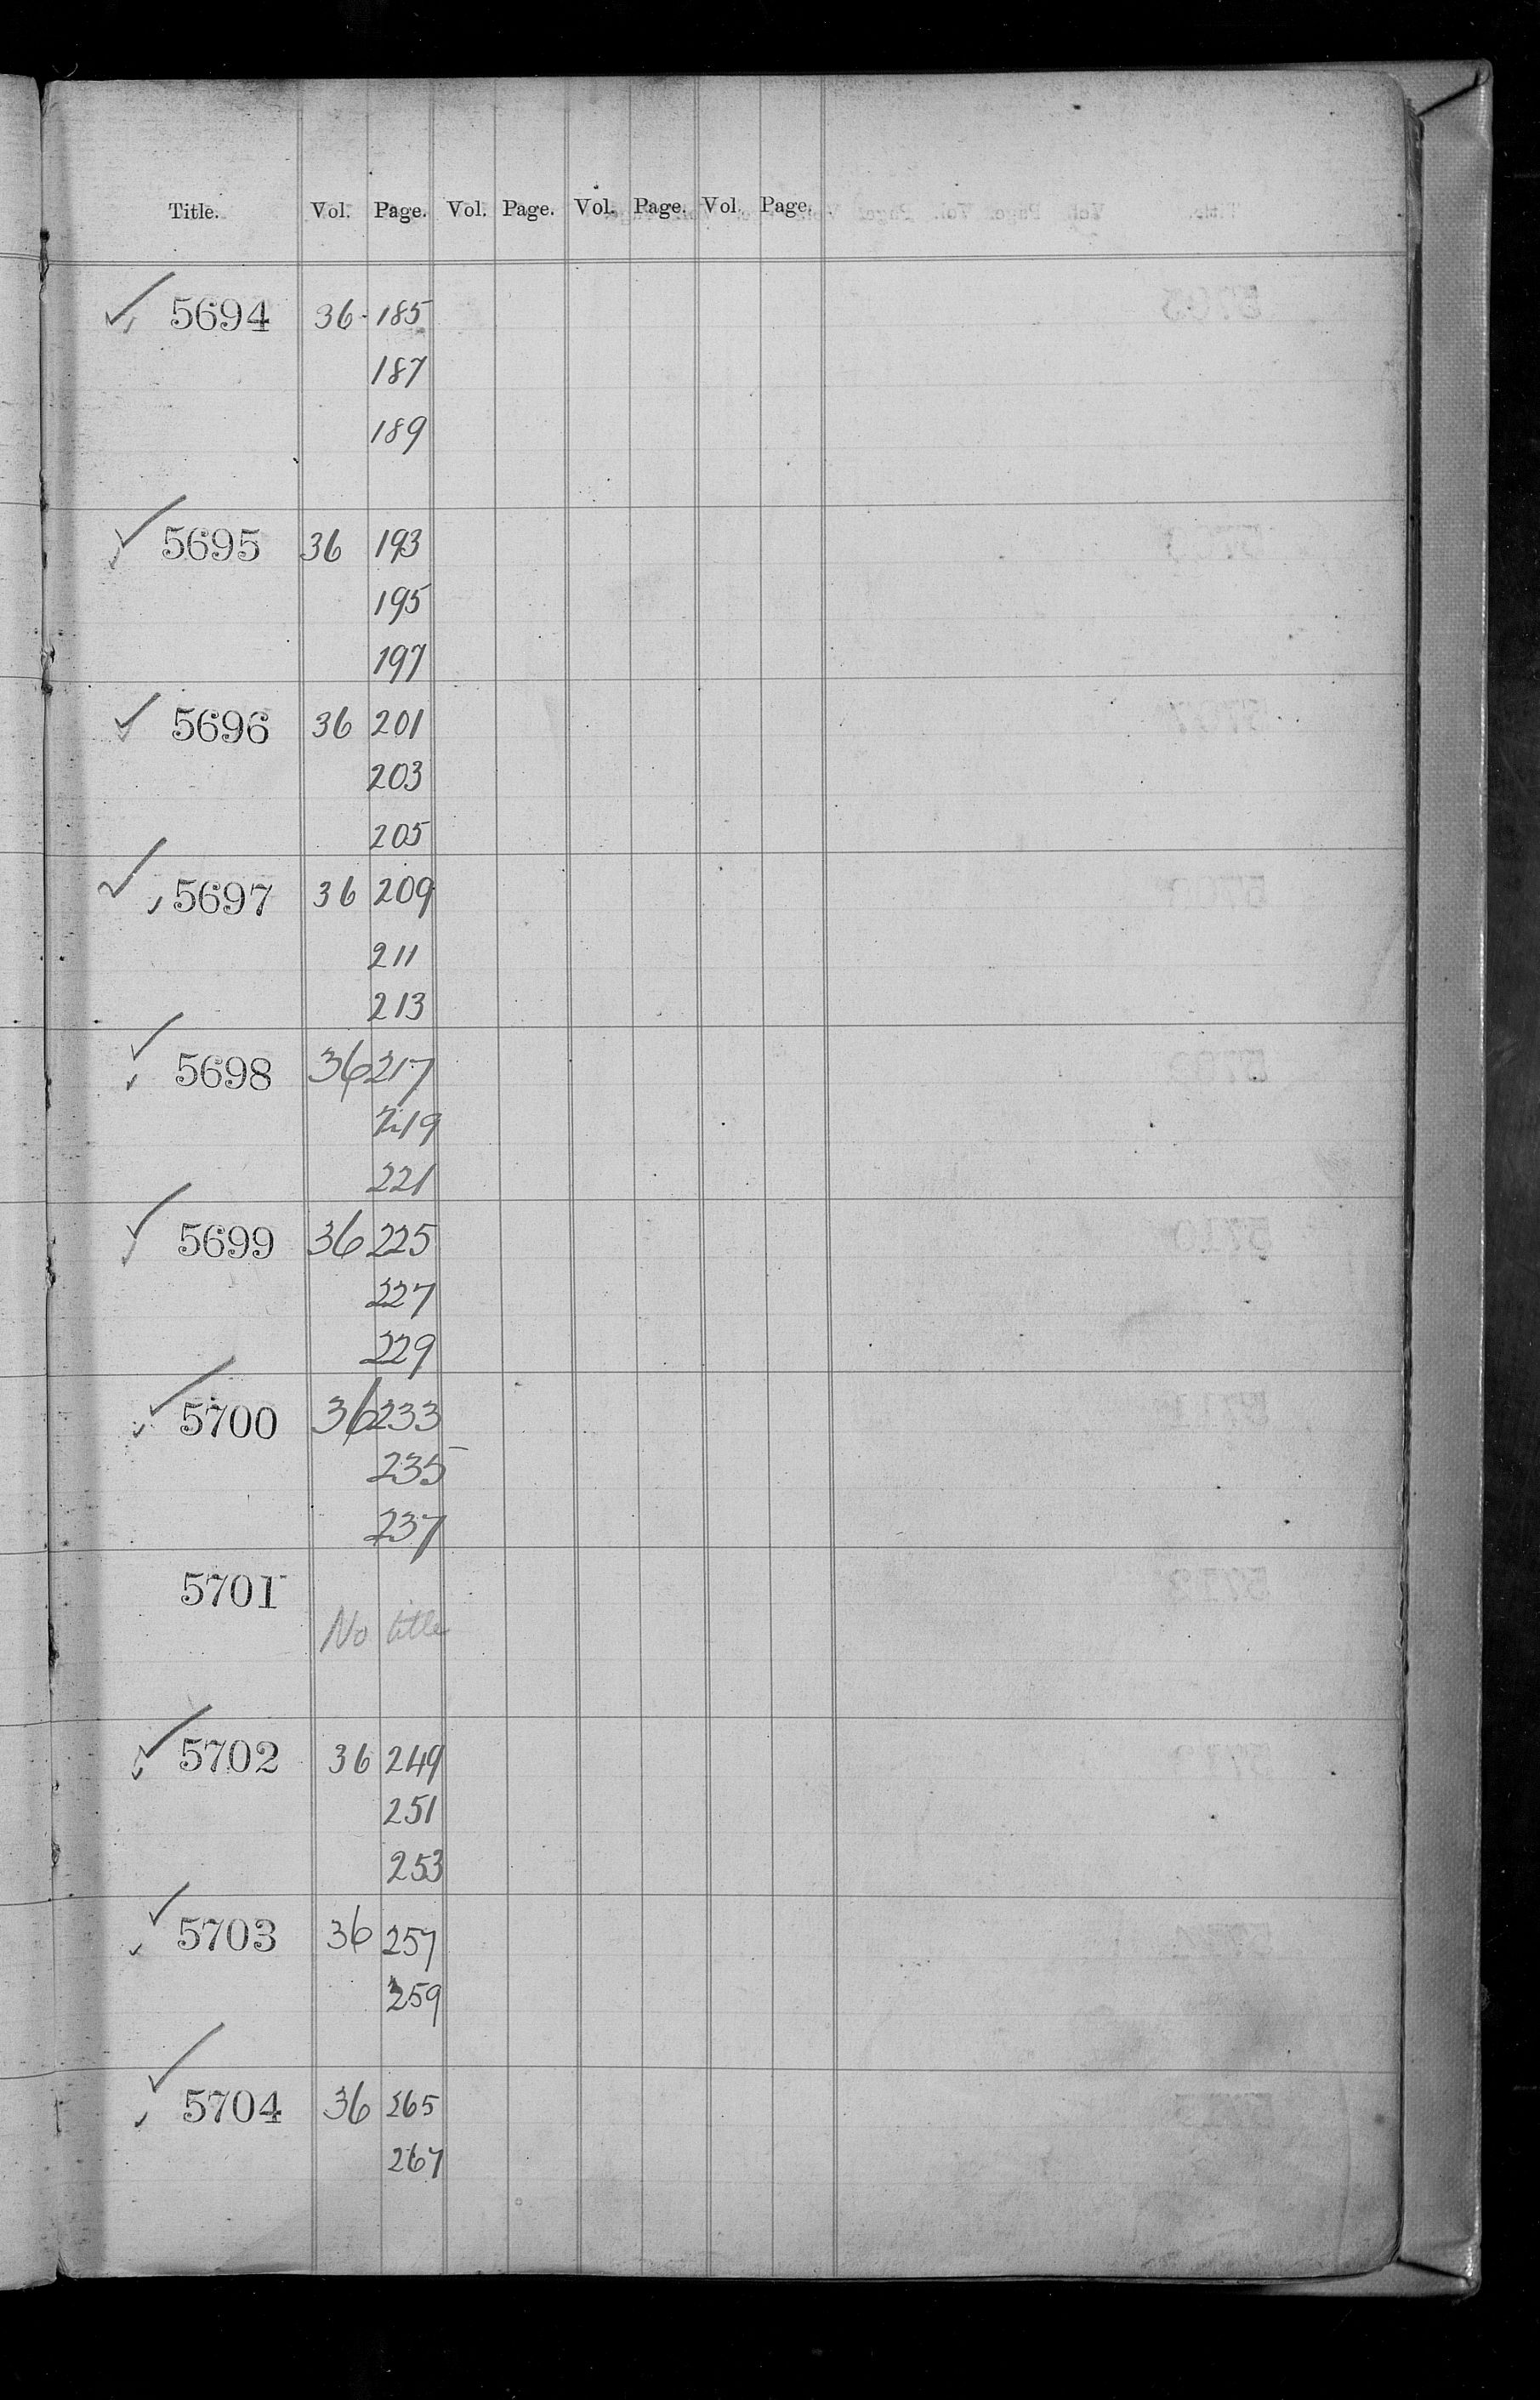 Title. Vol. Page. Vol. Page. Vol. Page. Vol. Page.
✓ 5694 36 185
187
189
✓ 5695 36 193
195
197
✓ 5696 36 201
203
205
✓ 5697 36 209
211
213
✓ 5698 36 217
219
221
✓ 5699 36 225
227
229
✓ 5700 36 233
235
237
5701
No title
✓ 5702 36 249
251
253
✓ 5703 36 257
259
✓ 5704 36 265
267